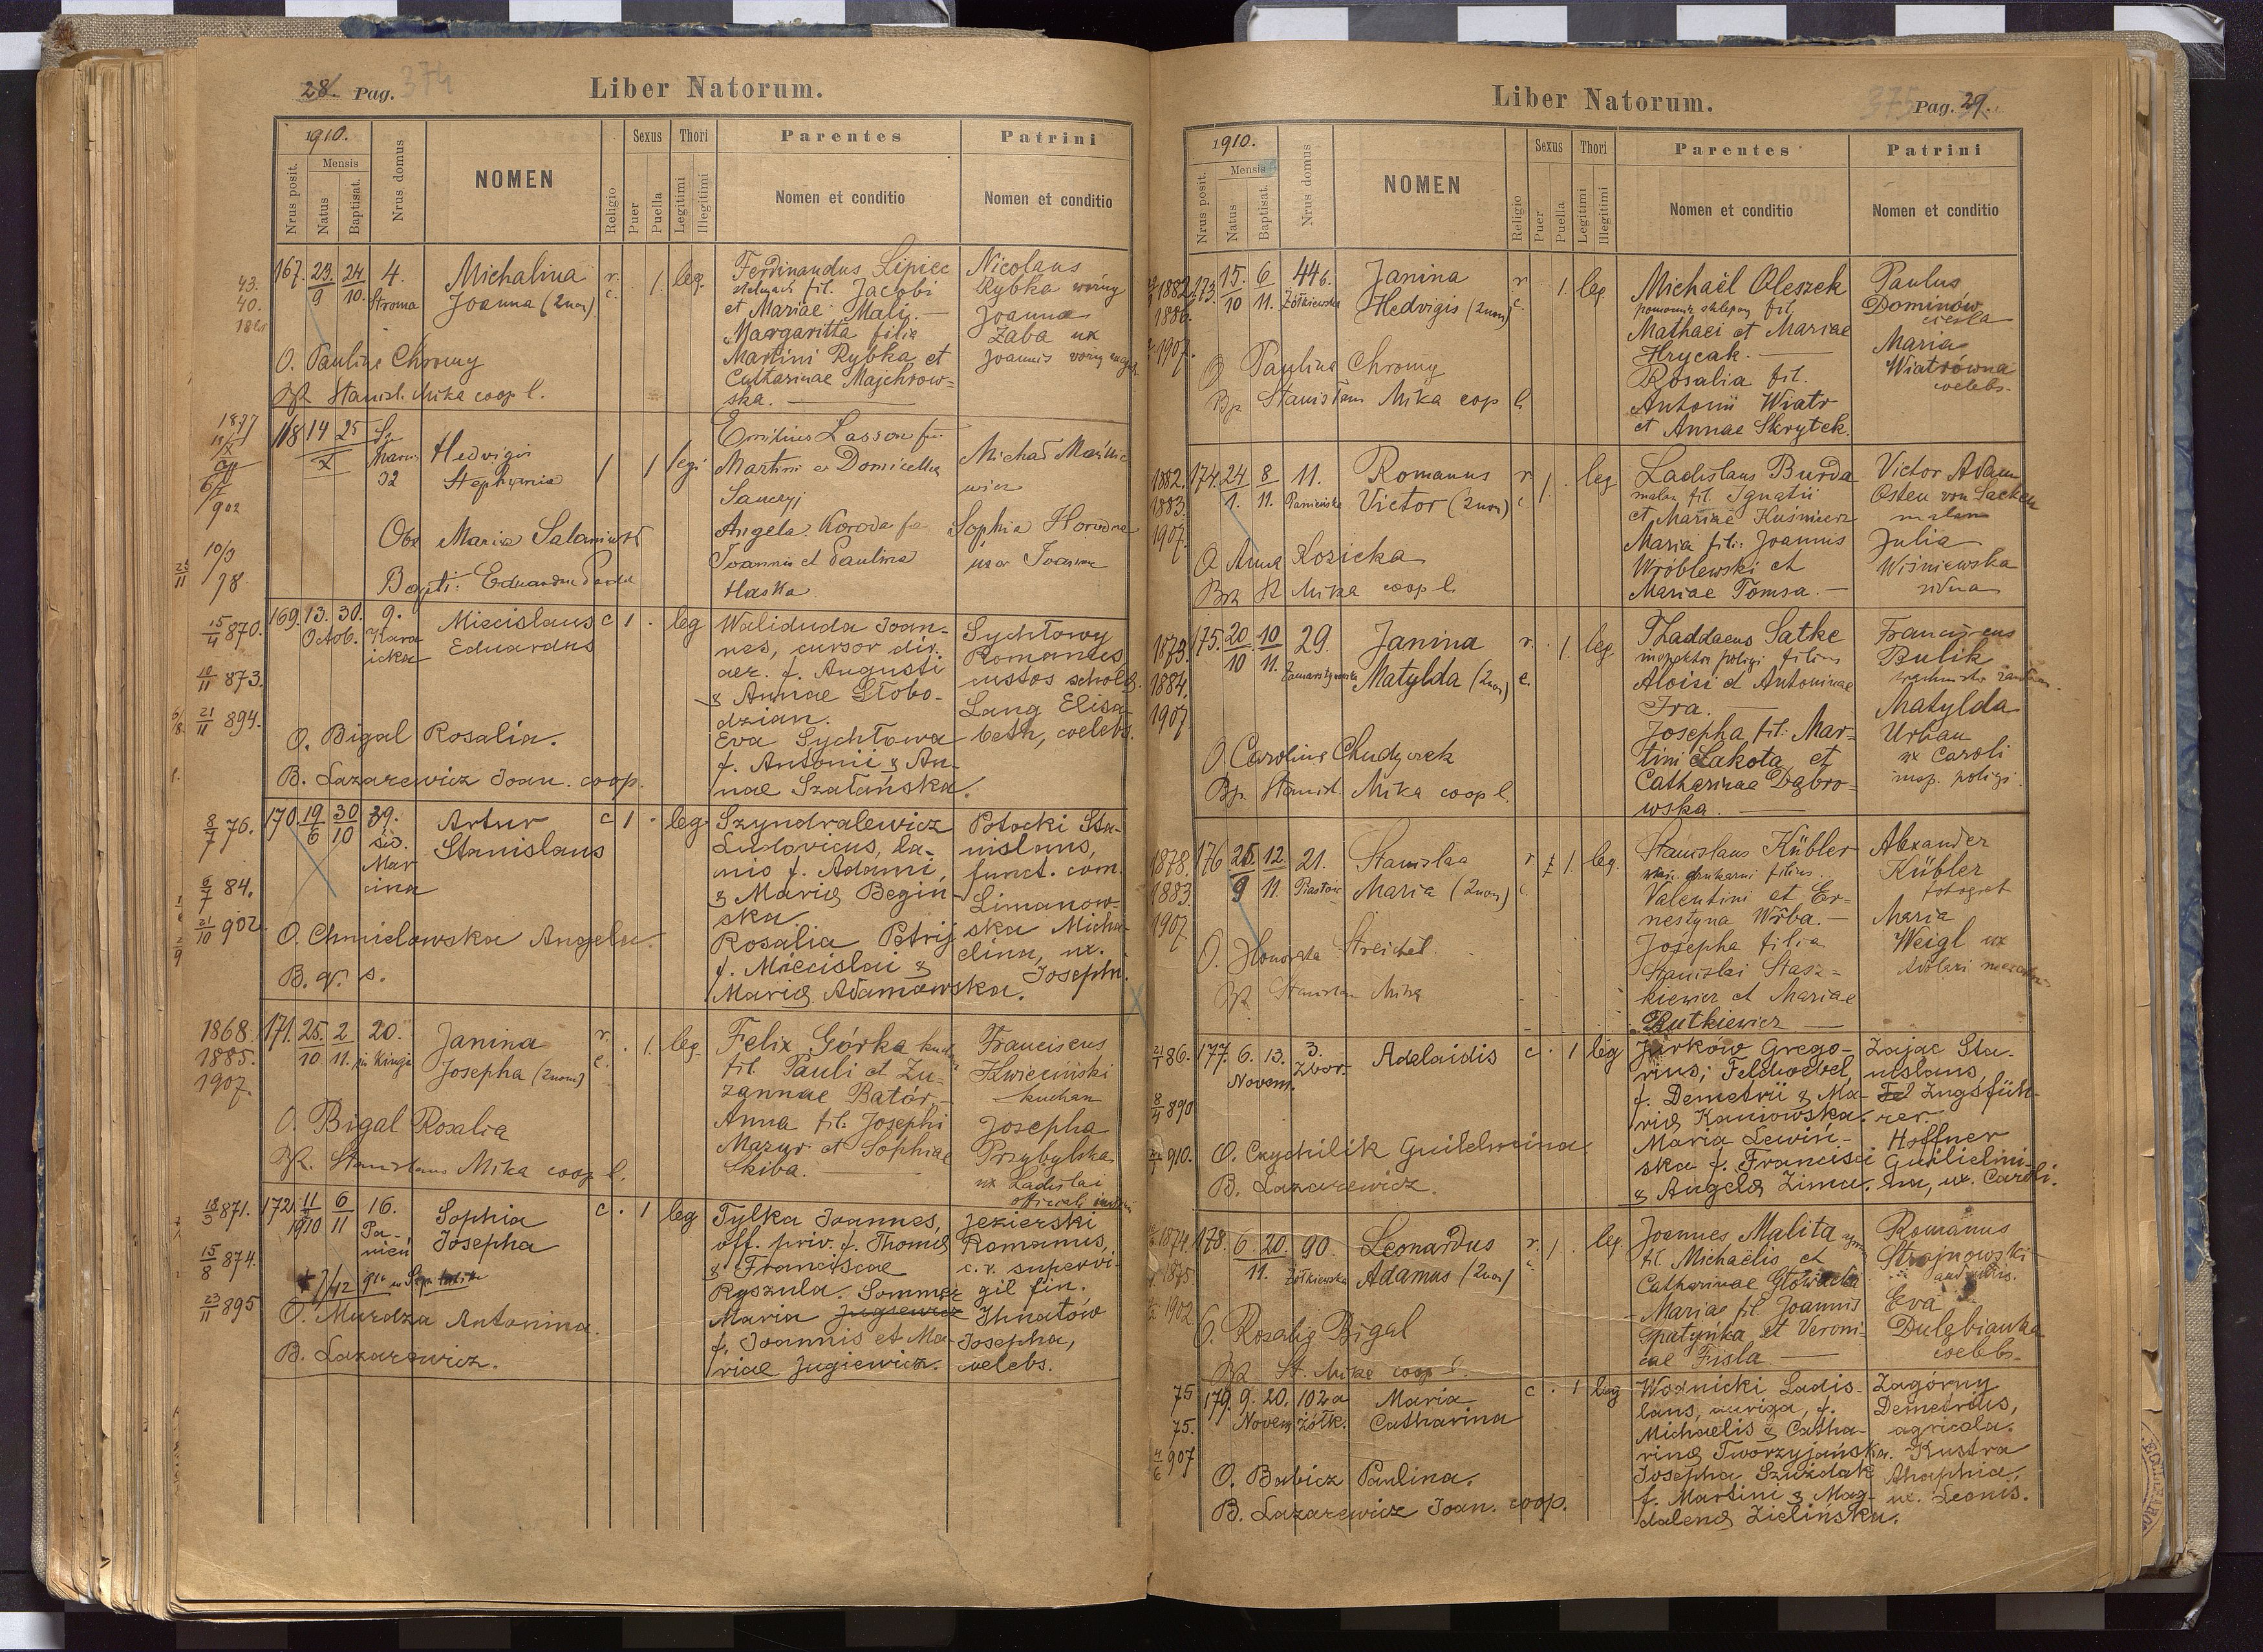 28. Pag. 374
Liber Natorum.
1910.
Nrus posit.
Mensis
Natus
Baptisat.
Nrus domus
NOMEN
Religio
Sexus
Puer
Puella
Thori
Legitimi
Illegitimi
Parentes
Nomen et conditio
Patrini
Nomen et conditio
43.
40.
167. 23/9 24/10. 4. Stroma
Michalina
Joanna (2nom)
r. c. 1. leg.
Ferdinandus Lipiec
stelmach fil. Jacobi
et Mariae Mali. —
Margaritta filia
Martini Rybka et
Catharinae Majchrow=
ska. —
Nicolaus
Rybka woźny
Joanna
Żaba ux
Joannis woźny
O. Paulina Chromy
Bp. Stanisl. Mika coop l.
1877
902
10/3
78.
168 14 25 X
32
Hedvigis
Stephania
1 1 legi
Emilius Lasson fil
Martini et Domicella
Angela Koroda fa
Joannis et Paulina
Haska
Michał
Sophia
uxor Joannis
Obs Maria
Bapti: Eduardus
15/4 870.
873.
21/11 894.
169. 13. 30. Octob. 9. Kara
icka
Miecislaus
Eduardus
c 1 . leg
Waliduda Joan-
nes, cursor dir.
aer. f. Augusti
& Annae Słobo-
dzian.
Eva Sychtowa
f. Antonii & An-
nae Szatańska.
Sychtowy
Romanus,
custos schol.
Lang Elisa-
beth, coelebs.
O. Bigal Rosalia.
B. Lazarewicz Joan. coop.
8/7 76.
6/7 84.
21/10 902.
170. 19/6 30/10 39.
św.
Mar
cina
Artur
Stanislaus
c 1 . leg
Szyndralewicz
Ludovicus, la-
nio f. Adami,
& Mariæ Begin-
ska.
Rosalia Petrij
f. Miecislai &
Mariæ Adamowska.
Potocki Sta-
nislaus,
funct. com.
Limanow-
ska Micha-
elina, ux.
Josephi.
O. Chmielowska Angela.
B. q. s.
1868.
1885.
1907.
171. 25/10 2/11. 20. Kingi
Janina
Josepha (2nom)
r. c. . 1. leg.
Felix Górka
fil. Pauli et Zu=
zannae Batór. —
Anna fil: Josephi
Mazur et Sophiae
Skiba. —
Franciscus
Kwieciński
kuchar
Josepha
Przybylska
ux Ladislai
O. Bigal Rosalia
Bp. Stanislaus Mika coop l.
18/3 871.
15/8 874.
23/11 895
172. 11 1910 6/11 16.
Pa-
nień
Sophia
Josepha
c . 1 leg
Tylka Joannes,
off. priv. f. Thomæ
& Franciscae
Ryszula. Sommer
Maria Jugiewicz
f. Joannis et Ma-
riae Jugiewicz.
Jezierski
Romanus,
c. r. supervi-
gil fin.
Ihnatów
Josepha,
coelebs.
O. Murdza Antonina.
B. Lazarewicz.
Liber Natorum.
375 Pag. 29.
1910.
Nrus posit.
Mensis
Natus
Baptisat.
Nrus domus
NOMEN
Religio
Sexus
Puer
Puella
Thori
Legitimi
Illegitimi
Parentes
Nomen et conditio
Patrini
Nomen et conditio
1882
1886.
1907.
173. 15/10 6/11. 446. Żółkiewska
Janina
Hedvigis (2nom)
r c . 1. leg.
Michaël Oleszek
pomocnik sklepowy fil.
Mathaei et Mariae
Hrycak. —
Rosalia fil.
Antonii Wiatr
et Annae Skrytek.
Paulus
Dominów
cieśla
Maria
Wiatrówna
coelebs.
O. Paulina Chromy
Bp Stanislaus Mika cop l.
1882.
1883.
1907.
174. 24/1. 8/11. 11. Panieńska
Romanus
Victor (2nom)
r. c. 1 . leg
Ladislaus Burda
malarz fil. Ignatii
et Mariae Kuśnierz
Maria fil: Joannis
Wróblewski et
Mariae Tomsa. —
Victor Adam
Osten von Sacken
malarz
Julia
Wiśniewska
vidua
O Anna Kozicka
Bp. St Mika coop l.
1873.
1884.
1907
175. 20/10 10/11. 29. Zamarstynowska
Janina
Matylda (2nom)
r. c. . 1. leg
Thaddaeus Satke
inspektor policyi filius
Aloisi et Antoninae
Fra. —
Josepha fil: Mar=
tini Lakota et
Catharinae Dąbro=
wska. —
Franciscus
Bulik
Matylda
Urban
ux Caroli
insp. policyi.
O. Carolina Chudyozek
Bp. Stanisl. Mika coop l.
1878.
1883.
1907
176 25/9 12/11. 21. Piastów
Stanislaa
Maria (2nom)
r c. 1 leg.
Stanislaus Kübler
właśc. drukarni filius.
Valentini et Er-
nestyna Wrba. —
Josepha filia
Stanislai Stasz=
kiewicz et Mariae
Rutkiewicz —
Alexander
Kübler
fotograf
Maria
Weigl ux
O. Honorata Streichel.
Bp Stanislaus Mika
86.
8/4 890
910.
177. 6. 13. Novem. 3.
Zbor.
Adelaidis
c . 1 leg
Jurków Grego-
rius, Feldwebel,
f. Demetrii & Ma-
riæ Kaniowska.
Maria Lewiń-
ska f. Francisci
& Angelæ Zima.
Zając Sta-
nislaus,
Zugsfüh-
rer.
Hoffner
Guilielmi-
na, ux. Caroli.
O. Czychilik Guilelmina
B. Lazarewicz.
1874.
1875
1902
178. 6. 20. 11. 90. Żółkiewska
Leonardus
Adamus (2nom)
r. c 1 . leg.
Joannes Malita
fil. Michaëlis et
Catharinae Głowacka
Mariae fil. Joannis
Spatyńka et Veroni-
cae Fusla —
Romanus
Strojnowski
Eva
Dulębianka
coelebs.
O. Rosalia Bigal
Bp St. Mika coop l.
75
75.
4/6 907
179. 9. 20. Novem. 102a
Żółk.
Maria
Catharina
c . 1 leg
Wodnicki Ladis-
laus, auriga, f.
Michaelis & Catha-
rinæ Tworzyjańska.
Josepha Szuzdak
f. Martini & Mag-
dalenæ Zielińska.
Zagórny
Demetrius,
agricola.
Kustra
Ahaphia,
ux. Leonis.
O. Babicz Paulina.
B. Lazarewicz Joan. coop.